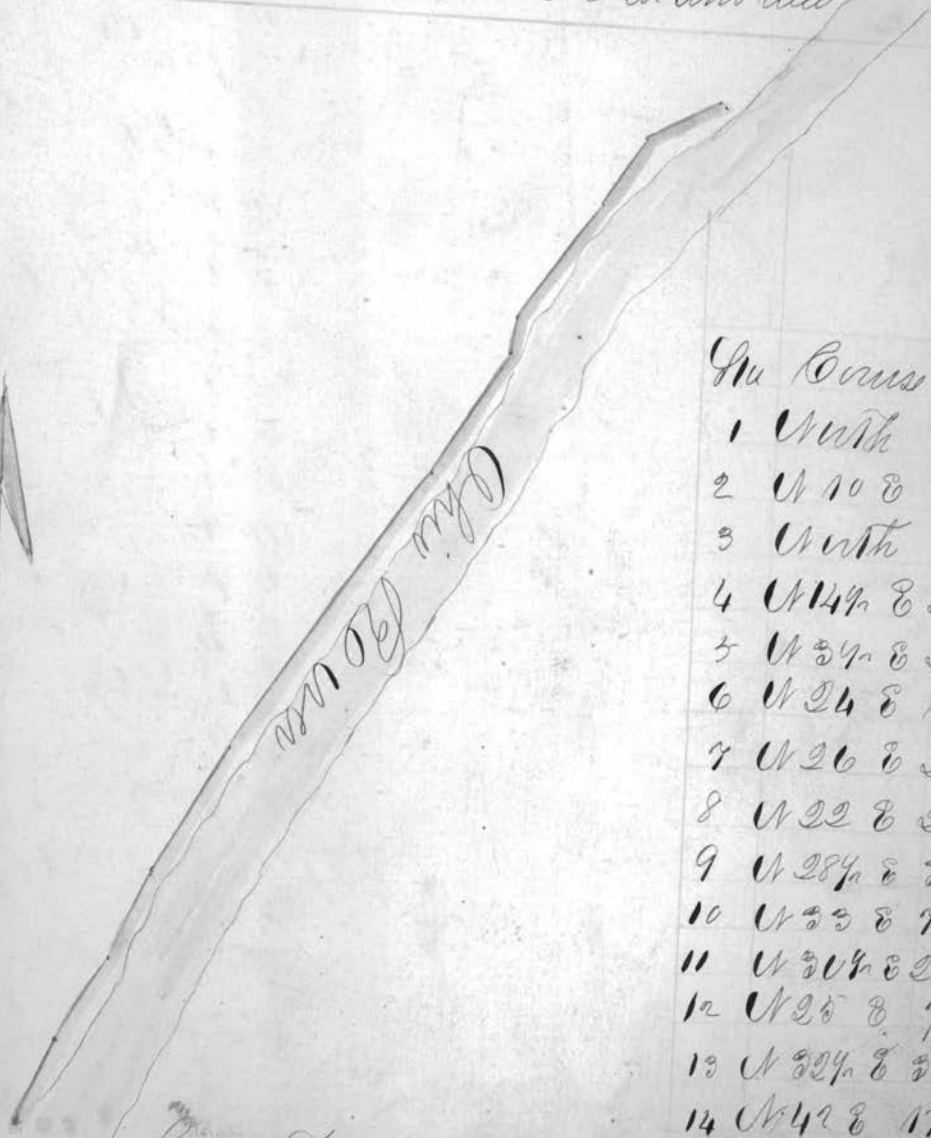 Ohio River
Sta Course
1 North
2 N 10 E
3 North
4 N 14½ E
5 N 3½ E
6 N 24 E
7 N 26 E
8 N 22 E
9 N 28½ E
10 N 33 E
11 N 30½ E 2
12 N 25 E
13 N 32½ E 3
14 N 42 E